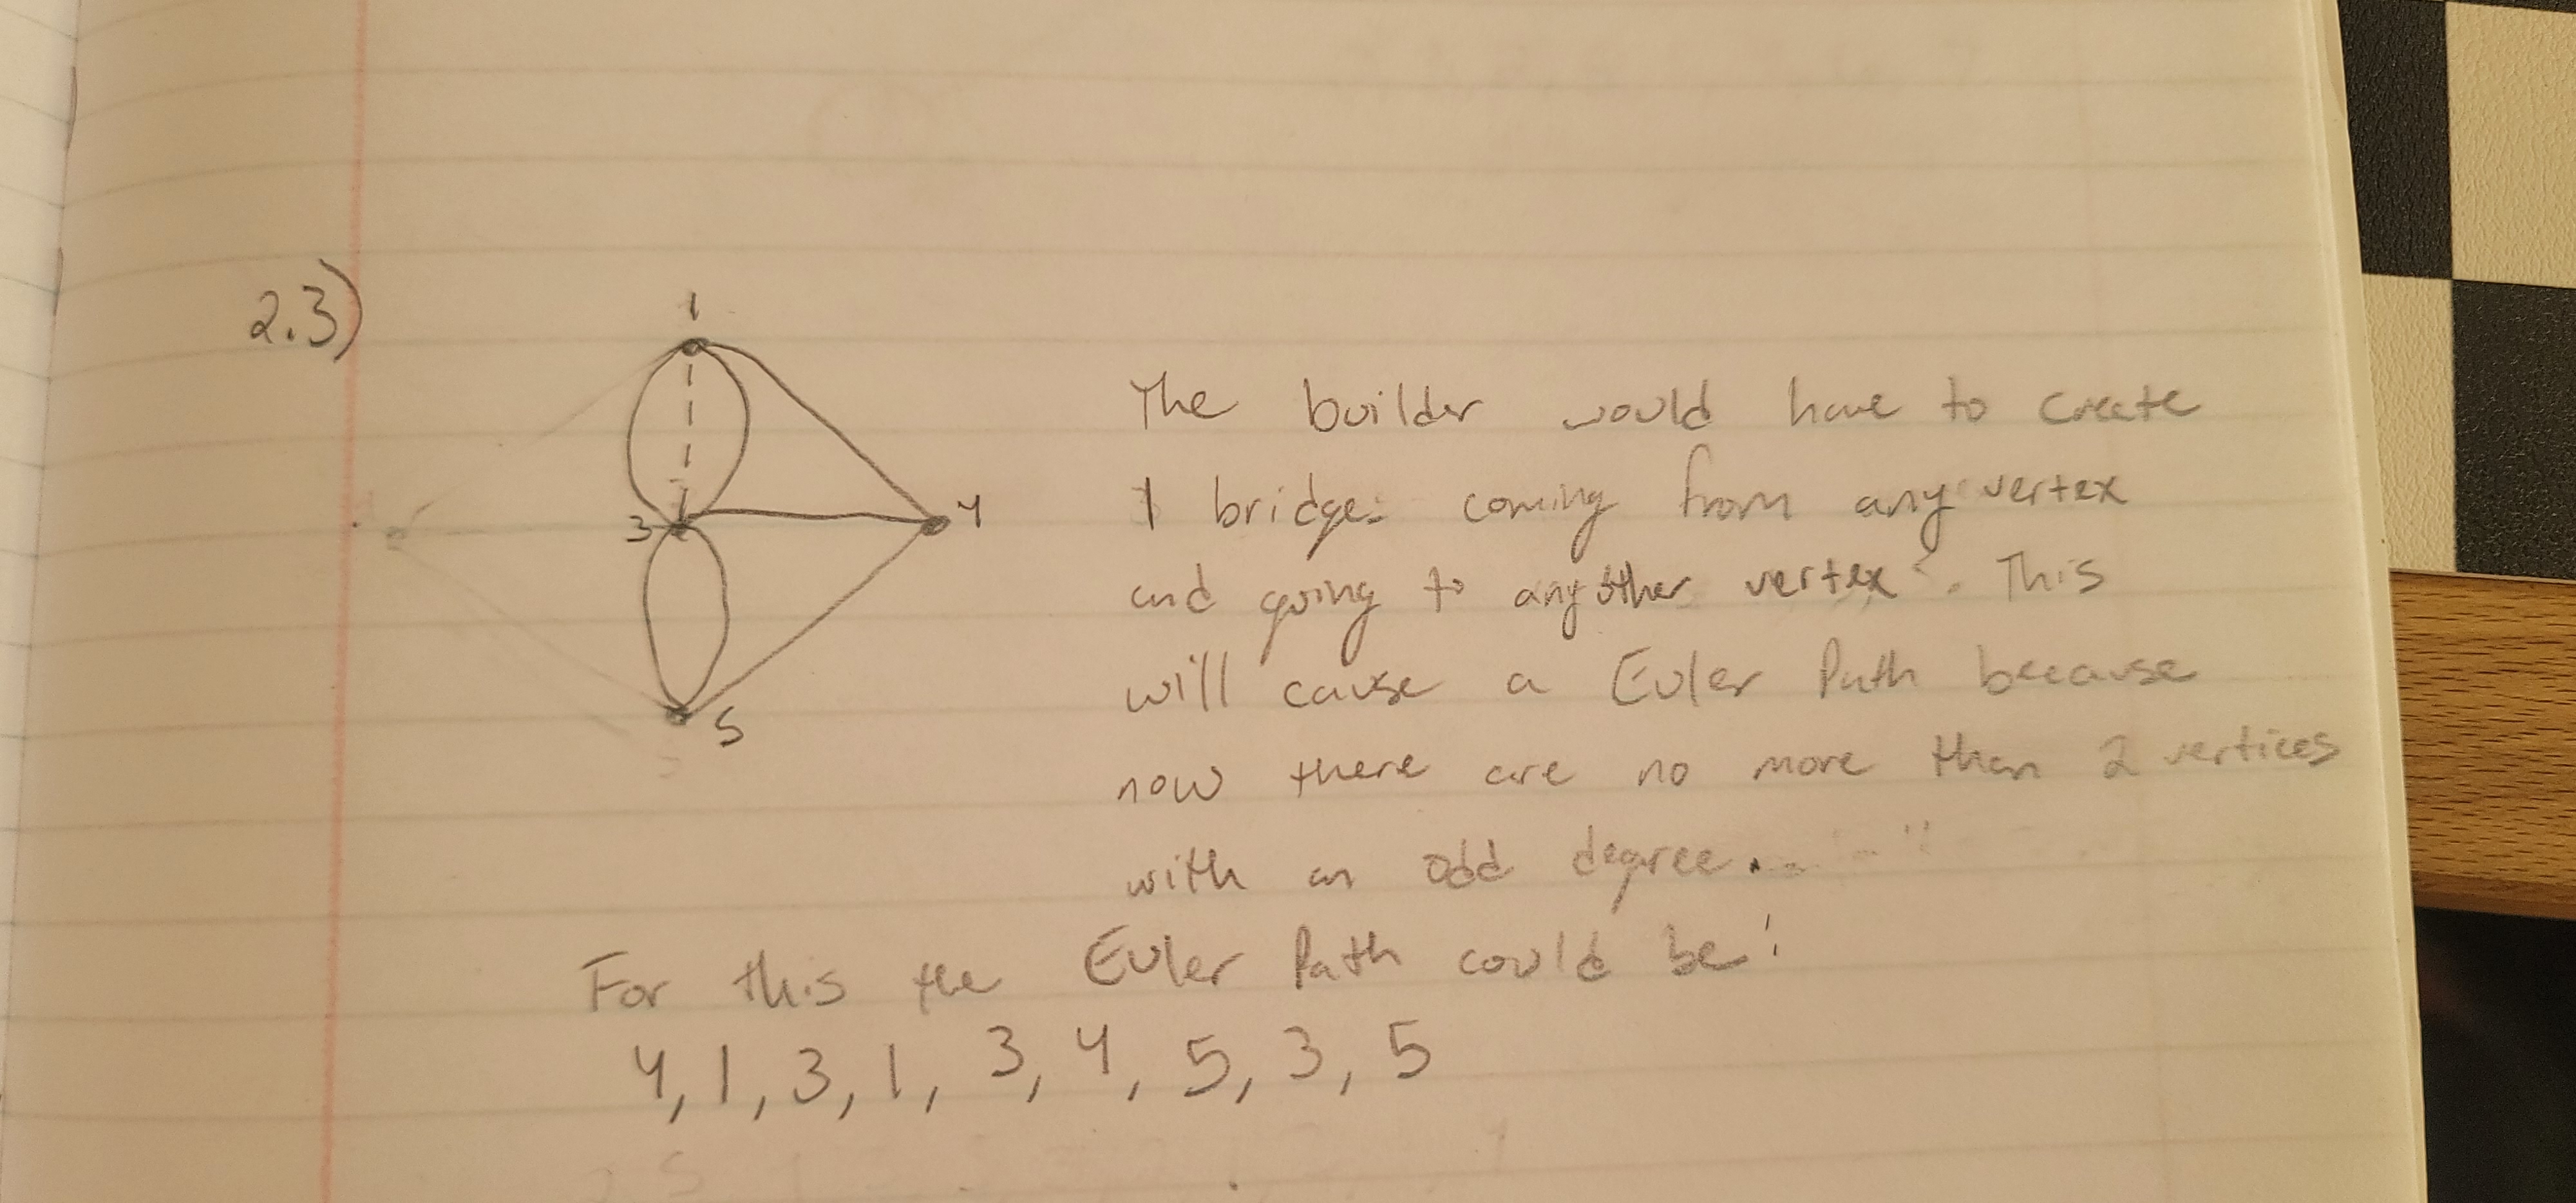 2.3)
1
3
4
5
The builder would have to create
1 bridge coming from any vertex
and going to any other vertex. This
will cause a Euler Path because
now there are no more than 2 vertices
with an odd degree.
For this the Euler Path could be:
4, 1, 3, 1, 3, 4, 5, 3, 5